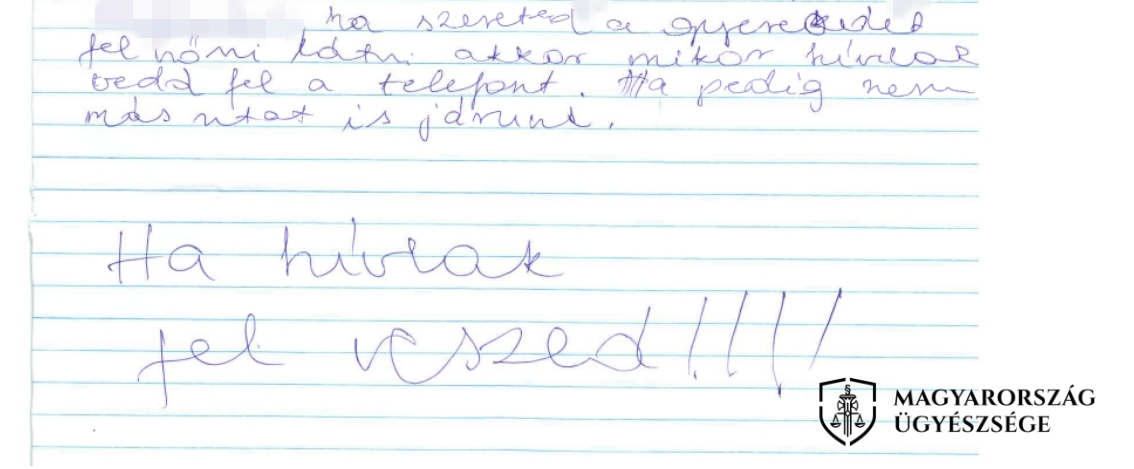 ha szereted a gyerekedet
fel nőni látni akkor mikor hívlak
vedd fel a telefont. Ha pedig nem
más utat is járunk.
Ha hívlak
fel veszed!!!!
MAGYARORSZÁG
ÜGYÉSZSÉGE